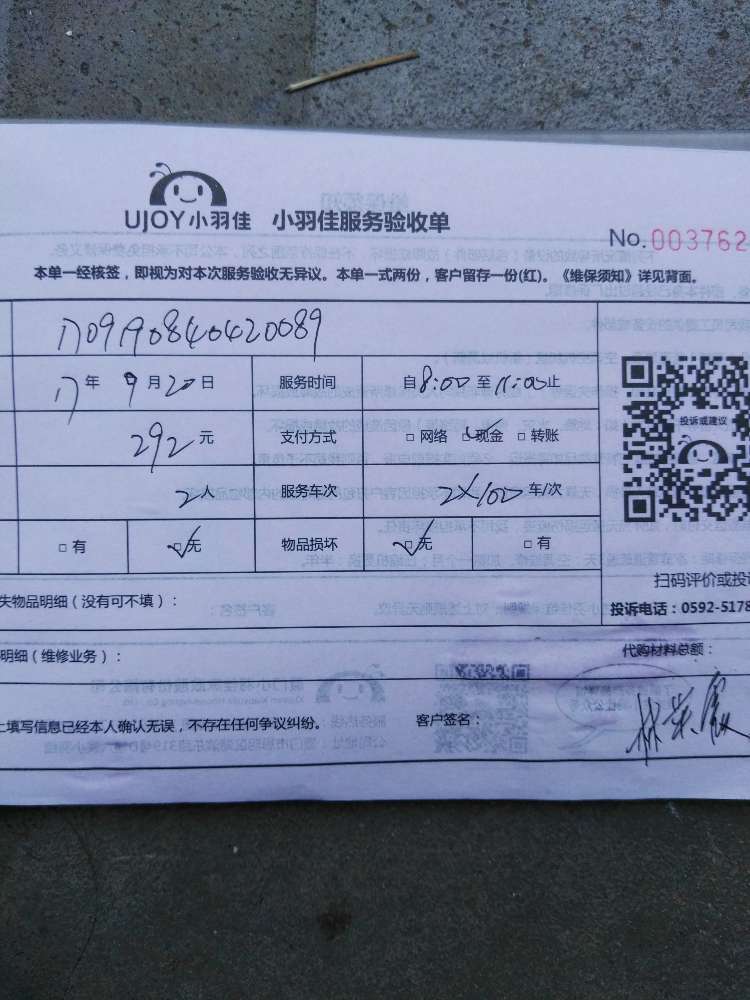 UJOY小羽佳 小羽佳服务验收单
No. 003762
本单一经核签，即视为对本次服务验收无异议。本单一式两份，客户留存一份(红)。《维保须知》详见背面。
17年 9月20日 服务时间 自8:00至11:00止
292元 支付方式 □网络 ☑现金 □转账
投诉或建议
2人 服务车次 2×100车/次
□有 ☑无 物品损坏 ☑无 □有
扫码评价或投诉
失物品明细（没有可不填）：
投诉电话：0592-5178
明细（维修业务）：
代购材料总额：
上填写信息已经本人确认无误，不存在任何争议纠纷。 客户签名：